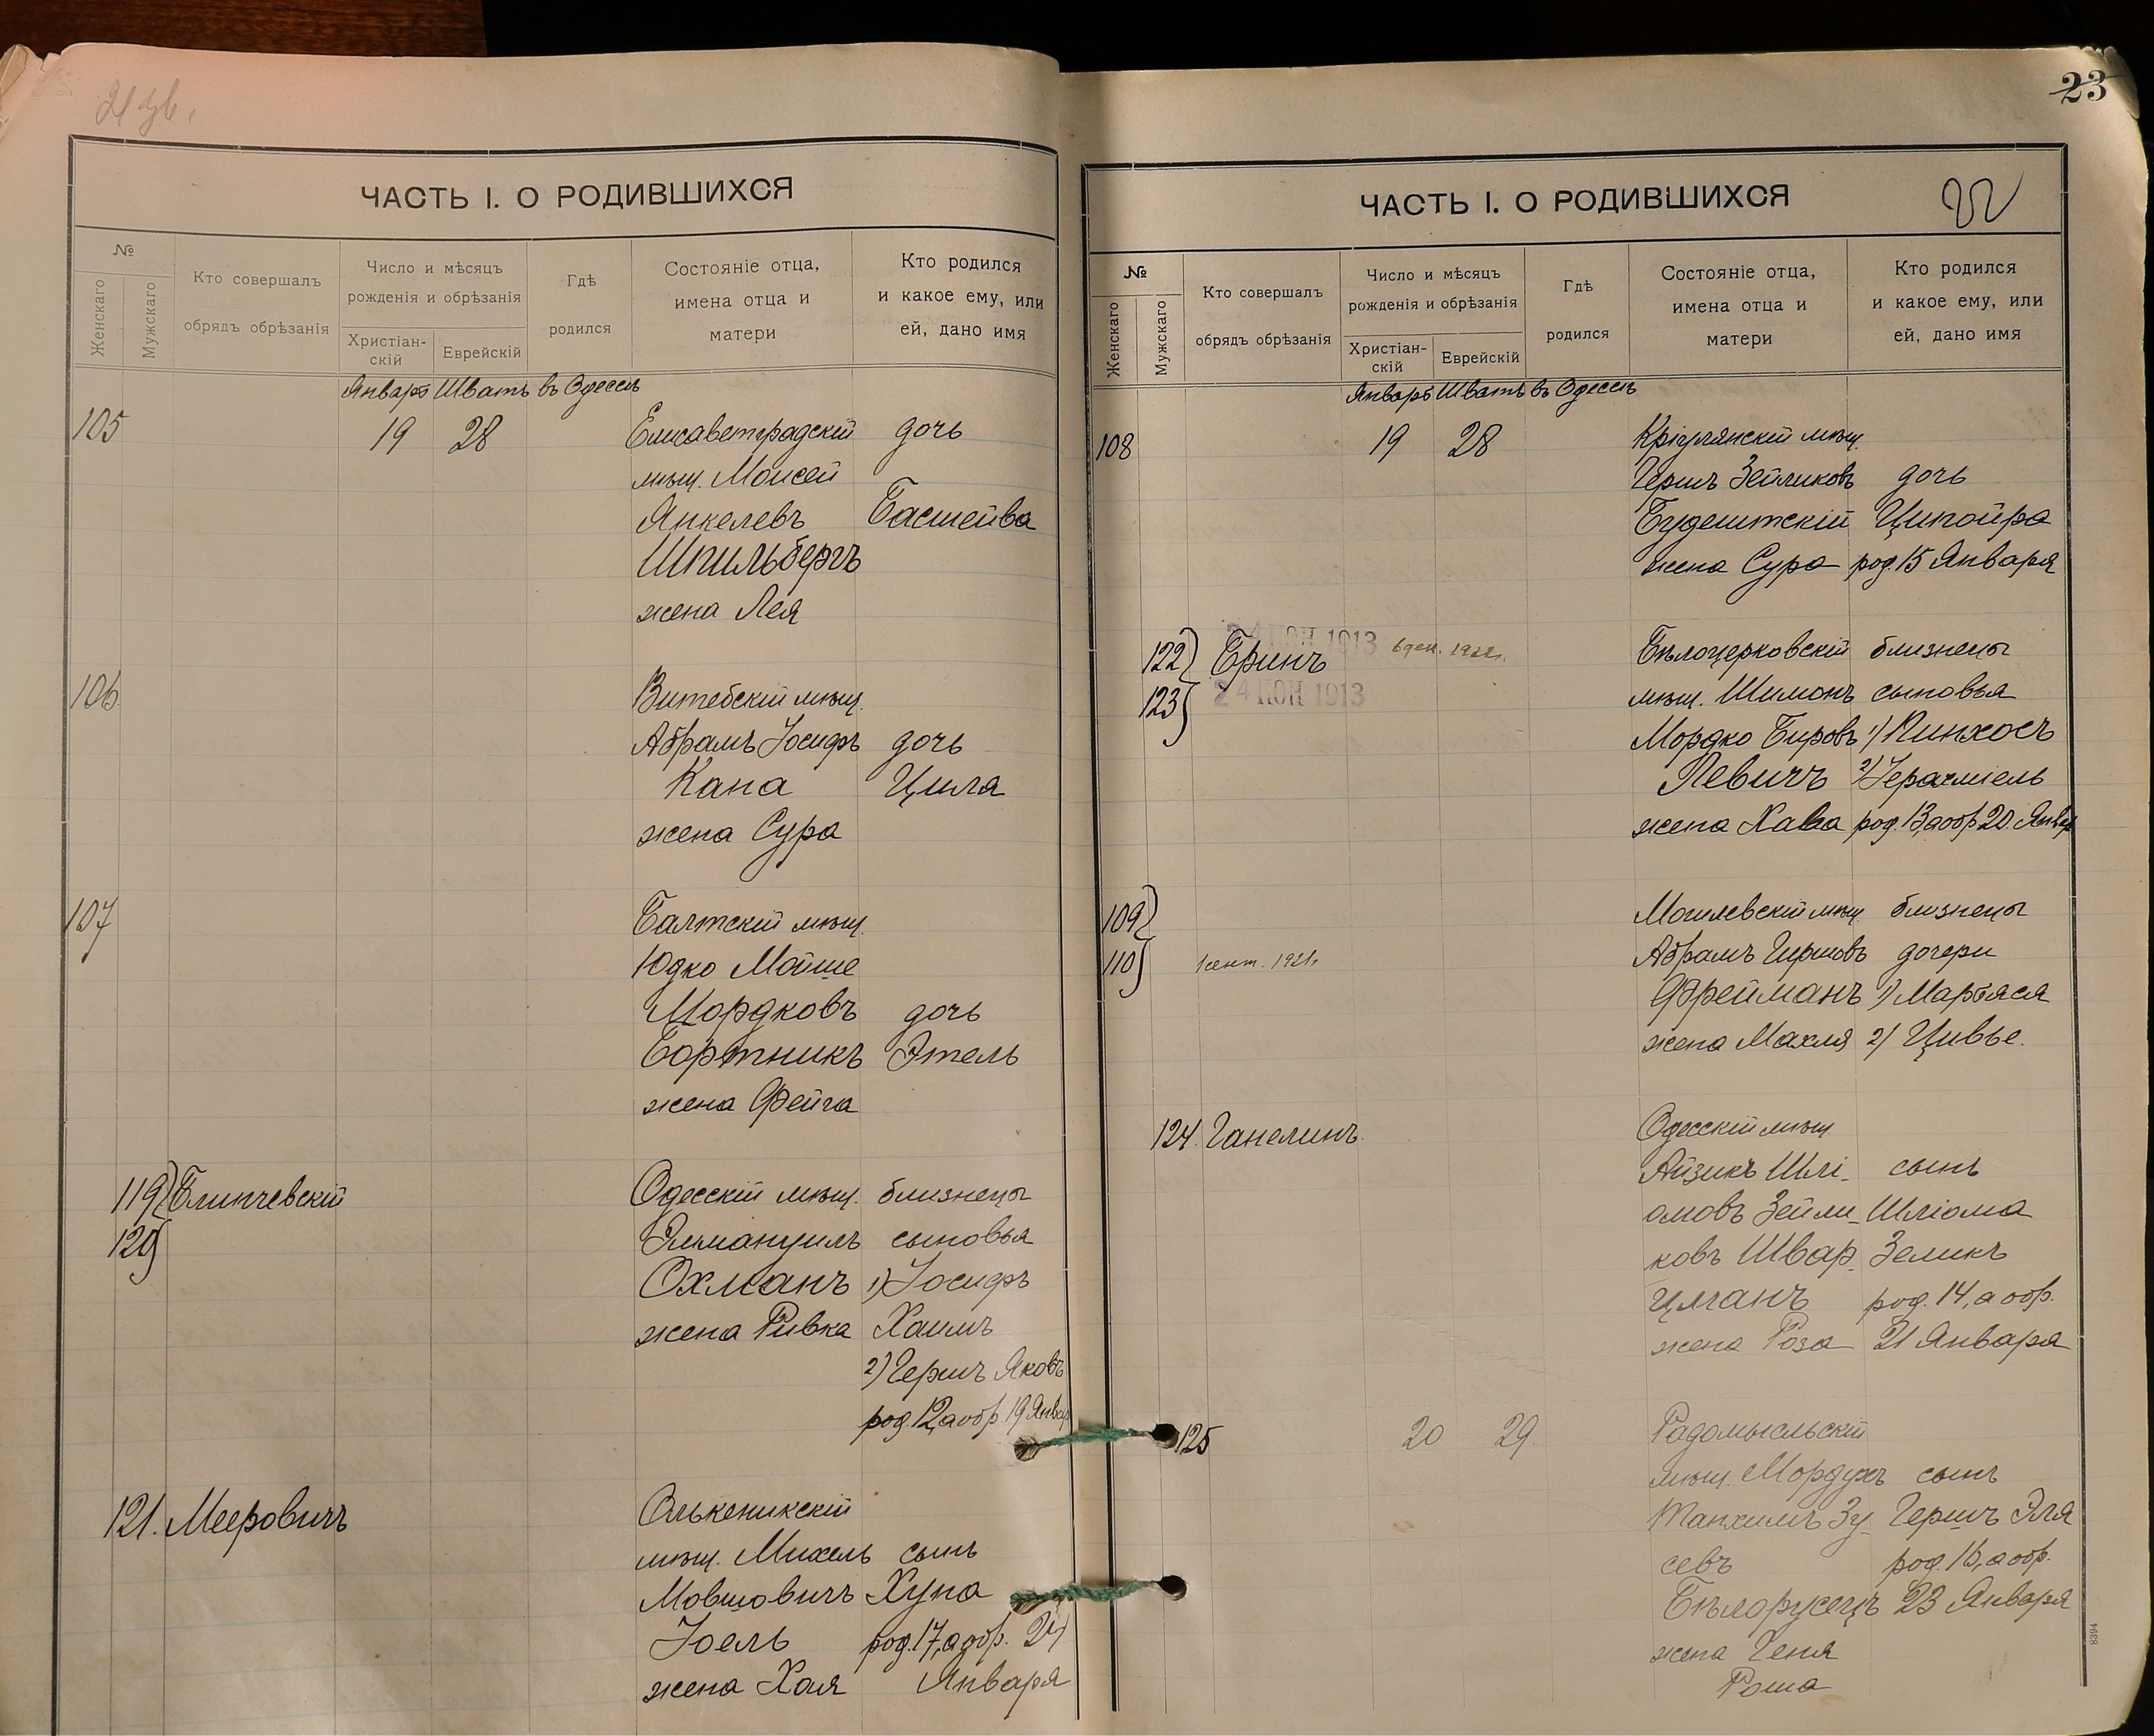 ЧАСТЬ I. О РОДИВШИХСЯ
№
Женскаго
Мужскаго
Кто совершалъ
обрядъ обрѣзанія
Число и мѣсяцъ
рожденія и обрѣзанія
Христіан-
скій
Еврейскій
Гдѣ
родился
Состояніе отца,
имена отца и
матери
Кто родился
и какое ему, или
ей, дано имя
Январь Шватъ въ Одессѣ
105 19 28 Елисаветградскій дочь
мѣщ. Моисей
Янкелевъ Басшейва
Шпильбергъ
жена Лея
106 Витебскій мѣщ.
Абрамъ Іосифъ дочь
Кана Цыля
жена Сура
107 Балтскій мѣщ.
Юдко Мойше
Мордковъ дочь
Бортникъ Этель
жена Фейга
119 Блинчевскій Одесскій мѣщ. близнецы
120 Эммануилъ сыновья
Охманъ 1) Іосифъ
жена Ривка Хаимъ
2) Гершъ Яковъ
род. 12, а обр. 19 Январ
121. Мееровичъ Олькеникскій
мѣщ. Михель сынъ
Мовшовичъ Хуна
Іоель род. 17, а обр. 24
жена Хая Января
23
ЧАСТЬ I. О РОДИВШИХСЯ
22
№
Женскаго
Мужскаго
Кто совершалъ
обрядъ обрѣзанія
Число и мѣсяцъ
рожденія и обрѣзанія
Христіан-
скій
Еврейскій
Гдѣ
родился
Состояніе отца,
имена отца и
матери
Кто родился
и какое ему, или
ей, дано имя
Январь Шватъ въ Одессѣ
108 19 28 Кріулянскій мѣщ.
Гершъ Зейликовъ дочь
Будештскій Ципойра
жена Сура род. 15 Января
24 ІЮН 1913
122 Бринъ 6 дек. 1922г. Бѣлоцерковскій близнецы
24 ІЮН 1913
123 мѣщ. Шимонъ сыновья
Мордко Бировъ 1) Пинхосъ
Левичъ 2) Іерахміель
жена Хава род. 13, а обр 20. Январ
109 Могилевскій мѣщ. близнецы
110 1 сент. 1921г. Абрамъ Гершовъ дочери
Фрейманъ 1) Марьяся
жена Махля 2) Цивье.
124. Ганелинъ. Одесскій мѣщ.
Айзикъ Шлі- сынъ
омовъ Зейли- Шліома
ковъ Швар- Зеликъ
цманъ род. 14, а обр.
жена Роза 21 Января
125 20 29. Радомысльскій
мѣщ. Мордухъ сынъ
Танхимъ Зу- Гершъ Эля
севъ род. 16, а обр.
Бѣлорусецъ 23 Января
жена Геня
Роша
8394